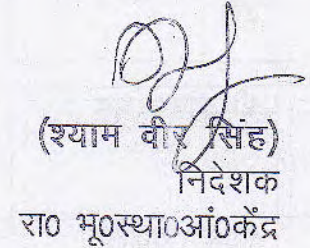 (श्याम वीर सिंह)
निदेशक
रा0 भू0स्था0आं0केंद्र